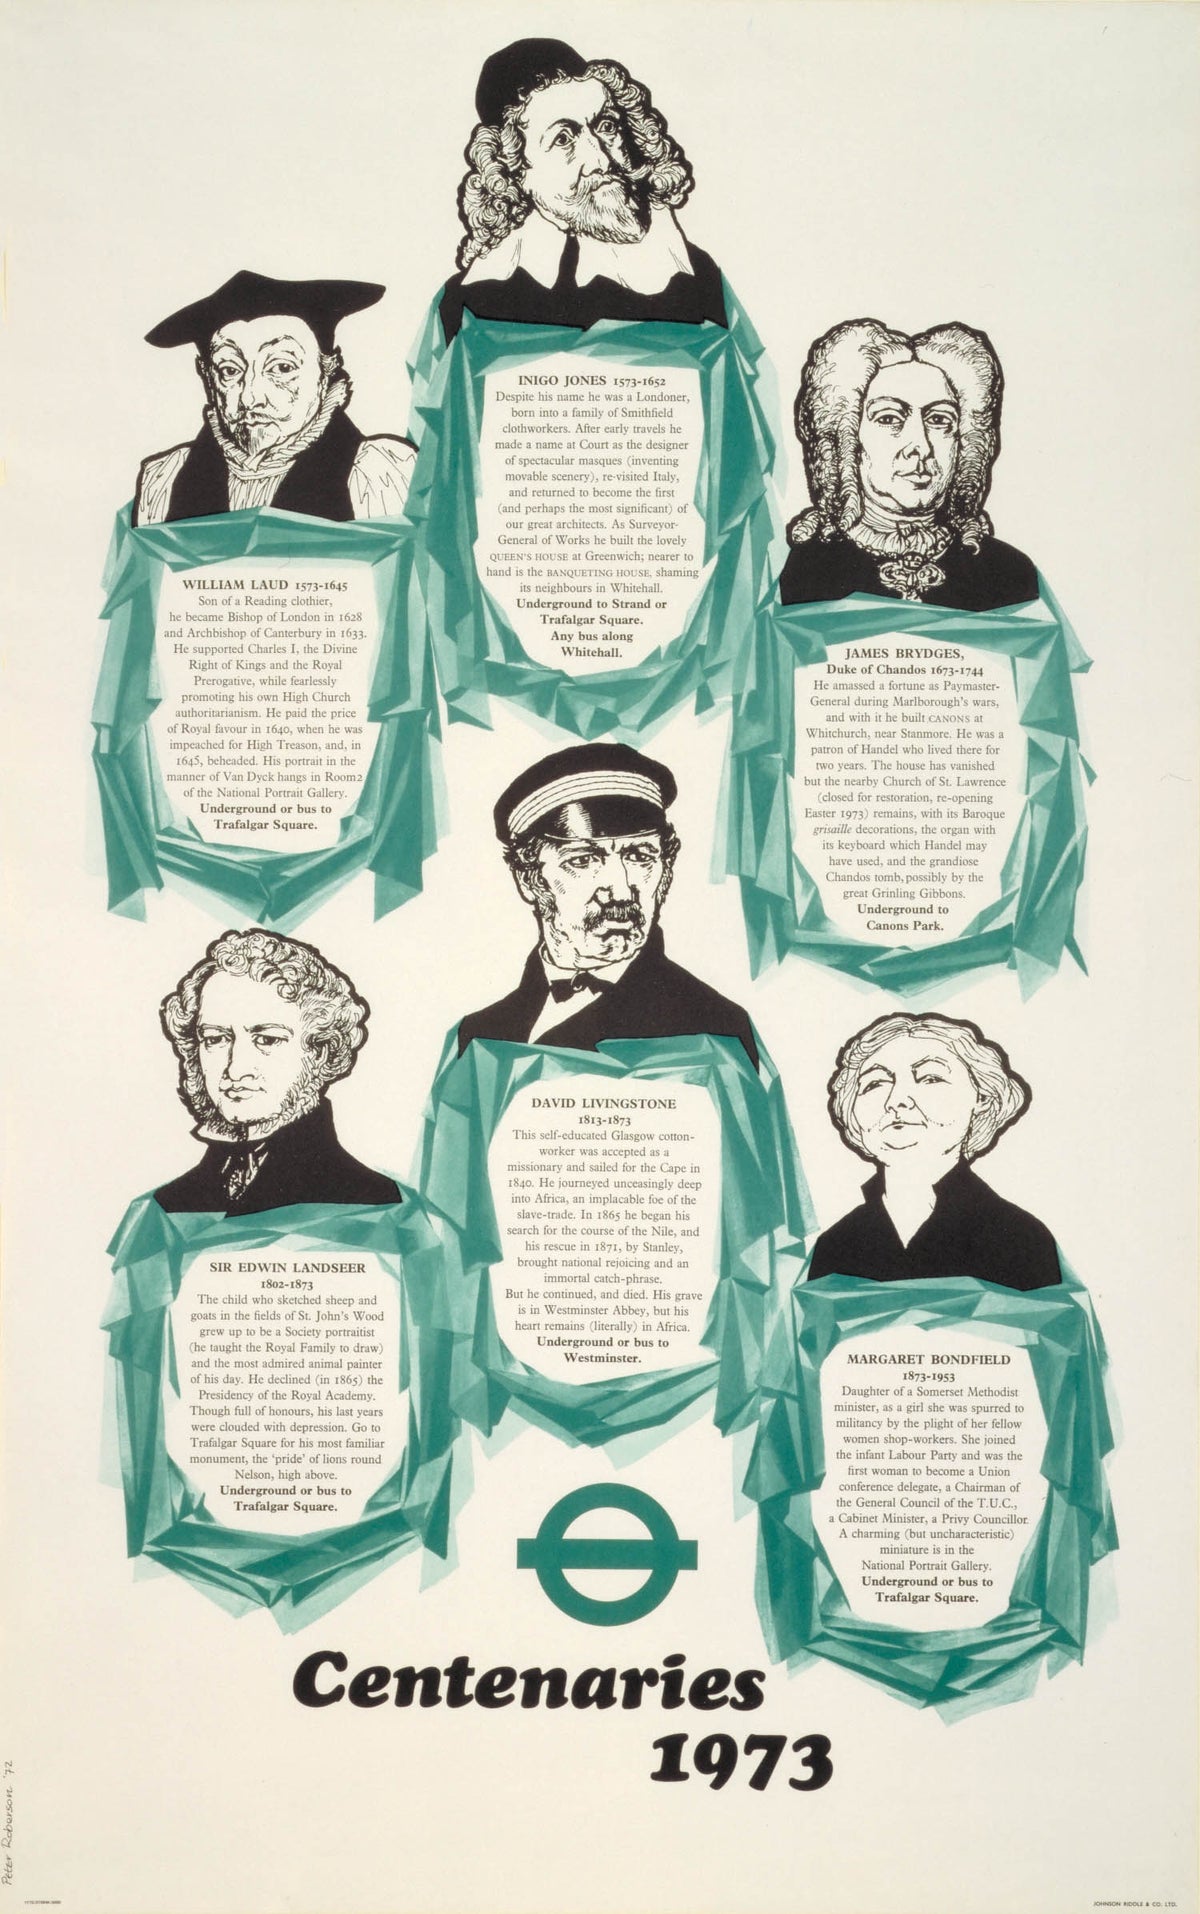 INIGO JONES 1573-1652
Despite his name he was a Londoner,
born into a family of Smithfield
clothworkers. After early travels he
made a name at Court as the designer
of spectacular masques (inventing
movable scenery), re-visited Italy,
and returned to become the first
(and perhaps the most significant) of
our great architects. As Surveyor-
General of Works he built the lovely
QUEEN'S HOUSE at Greenwich; nearer to
hand is the BANQUETING HOUSE, shaming
its neighbours in Whitehall.
Underground to Strand or
Trafalgar Square.
Any bus along
Whitehall.
WILLIAM LAUD 1573-1645
Son of a Reading clothier,
he became Bishop of London in 1628
and Archbishop of Canterbury in 1633.
He supported Charles I, the Divine
Right of Kings and the Royal
Prerogative, while fearlessly
promoting his own High Church
authoritarianism. He paid the price
of Royal favour in 1640, when he was
impeached for High Treason, and, in
1645, beheaded. His portrait in the
manner of Van Dyck hangs in Room2
of the National Portrait Gallery.
Underground or bus to
Trafalgar Square.
JAMES BRYDGES,
Duke of Chandos 1673-1744
He amassed a fortune as Paymaster-
General during Marlborough's wars,
and with it he built CANONS at
Whitchurch, near Stanmore. He was a
patron of Handel who lived there for
two years. The house has vanished
but the nearby Church of St. Lawrence
(closed for restoration, re-opening
Easter 1973) remains, with its Baroque
grisaille decorations, the organ with
its keyboard which Handel may
have used, and the grandiose
Chandos tomb, possibly by the
great Grinling Gibbons.
Underground to
Canons Park.
DAVID LIVINGSTONE
1813-1873
This self-educated Glasgow cotton-
worker was accepted as a
missionary and sailed for the Cape in
1840. He journeyed unceasingly deep
into Africa, an implacable foe of the
slave-trade. In 1865 he began his
search for the course of the Nile, and
his rescue in 1871, by Stanley,
brought national rejoicing and an
immortal catch-phrase.
But he continued, and died. His grave
is in Westminster Abbey, but his
heart remains (literally) in Africa.
Underground or bus to
Westminster.
SIR EDWIN LANDSEER
1802-1873
The child who sketched sheep and
goats in the fields of St. John's Wood
grew up to be a Society portraitist
(he taught the Royal Family to draw)
and the most admired animal painter
of his day. He declined (in 1865) the
Presidency of the Royal Academy.
Though full of honours, his last years
were clouded with depression. Go to
Trafalgar Square for his most familiar
monument, the 'pride' of lions round
Nelson, high above.
Underground or bus to
Trafalgar Square.
MARGARET BONDFIELD
1873-1953
Daughter of a Somerset Methodist
minister, as a girl she was spurred to
militancy by the plight of her fellow
women shop-workers. She joined
the infant Labour Party and was the
first woman to become a Union
conference delegate, a Chairman of
the General Council of the T.U.C.,
a Cabinet Minister, a Privy Councillor.
A charming (but uncharacteristic)
miniature is in the
National Portrait Gallery.
Underground or bus to
Trafalgar Square.
Centenaries
1973
Peter Roberson '72
JOHNSON RIDDLE & CO. LTD.